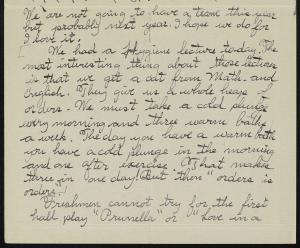 We are not going to have a team this year
but probably next year. I hope we do for
I love it.
We had a Hygiene lecture today. The
most interesting thing about those lectures
is that we get a cut from Math. and
English. They give us a whole heap of
orders. We must take a cold plunge
every morning and three warm baths
a week. The day you have a warm bath
you have a cold plunge in the morning
and one after exercise. That makes
three in one day! But then "orders is
orders."
Freshmen cannot try for the first
hall play "Prunella" or "Love in a